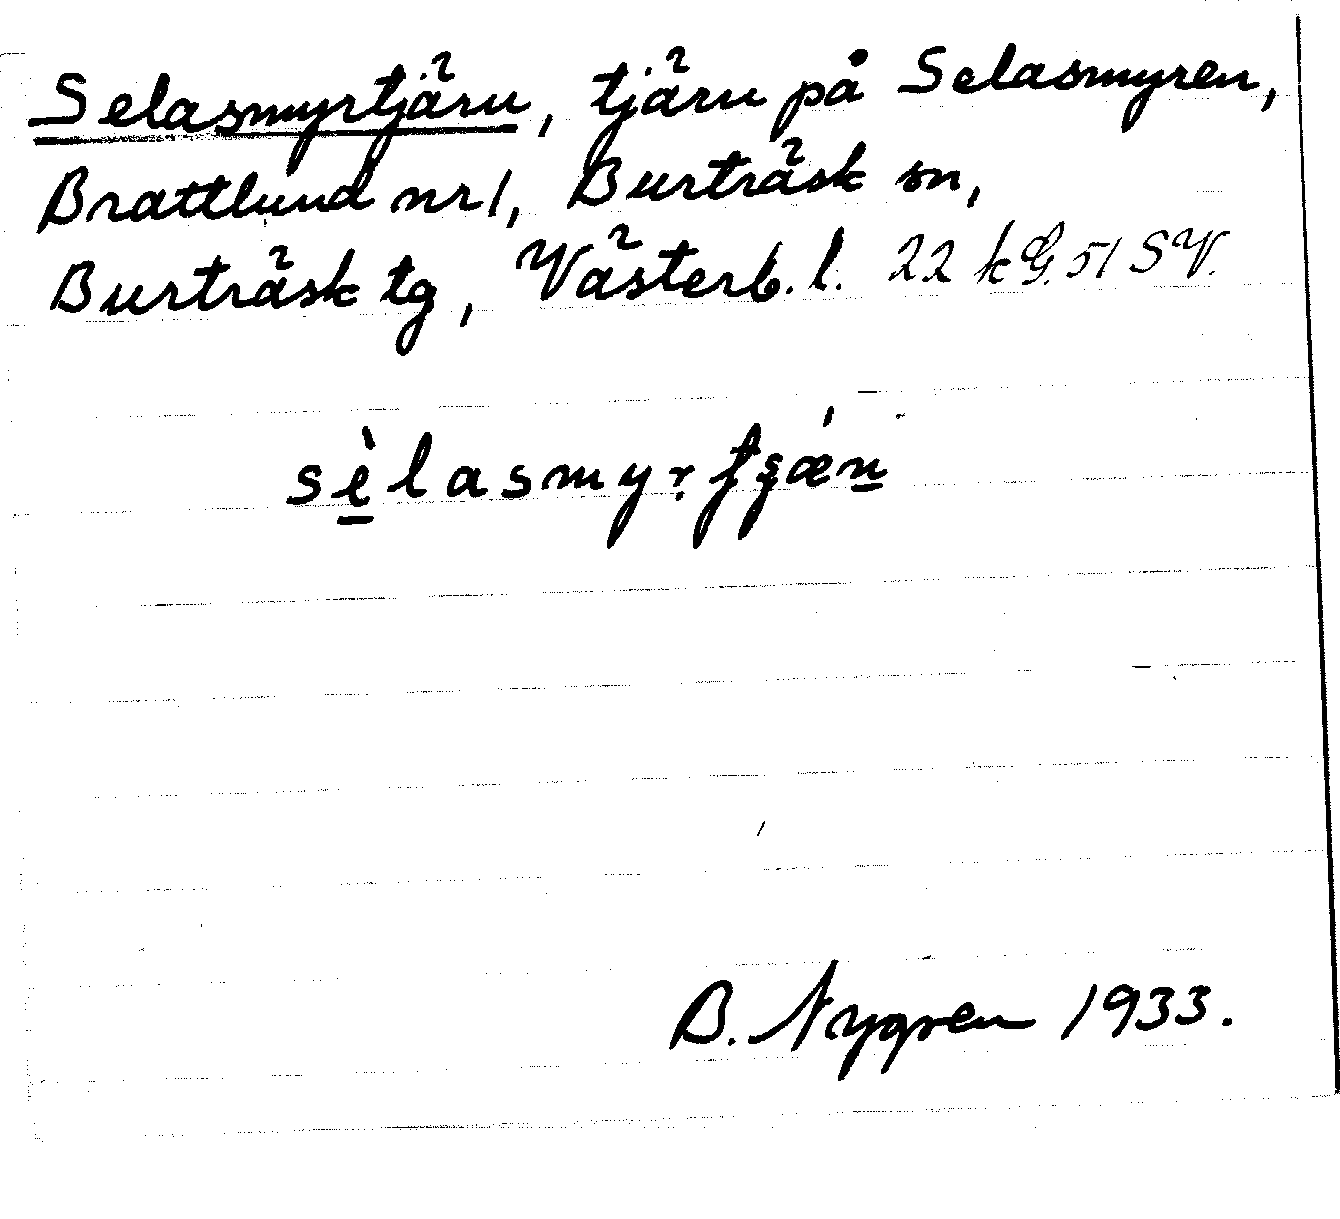 Selasmyrtjärn, tjärn på Selasmyren,
Brattlund nr 1, Burträsk sn,
Burträsk tg, Västerb. l. 22 k G. 51 SV.
B. Nygren 1933.